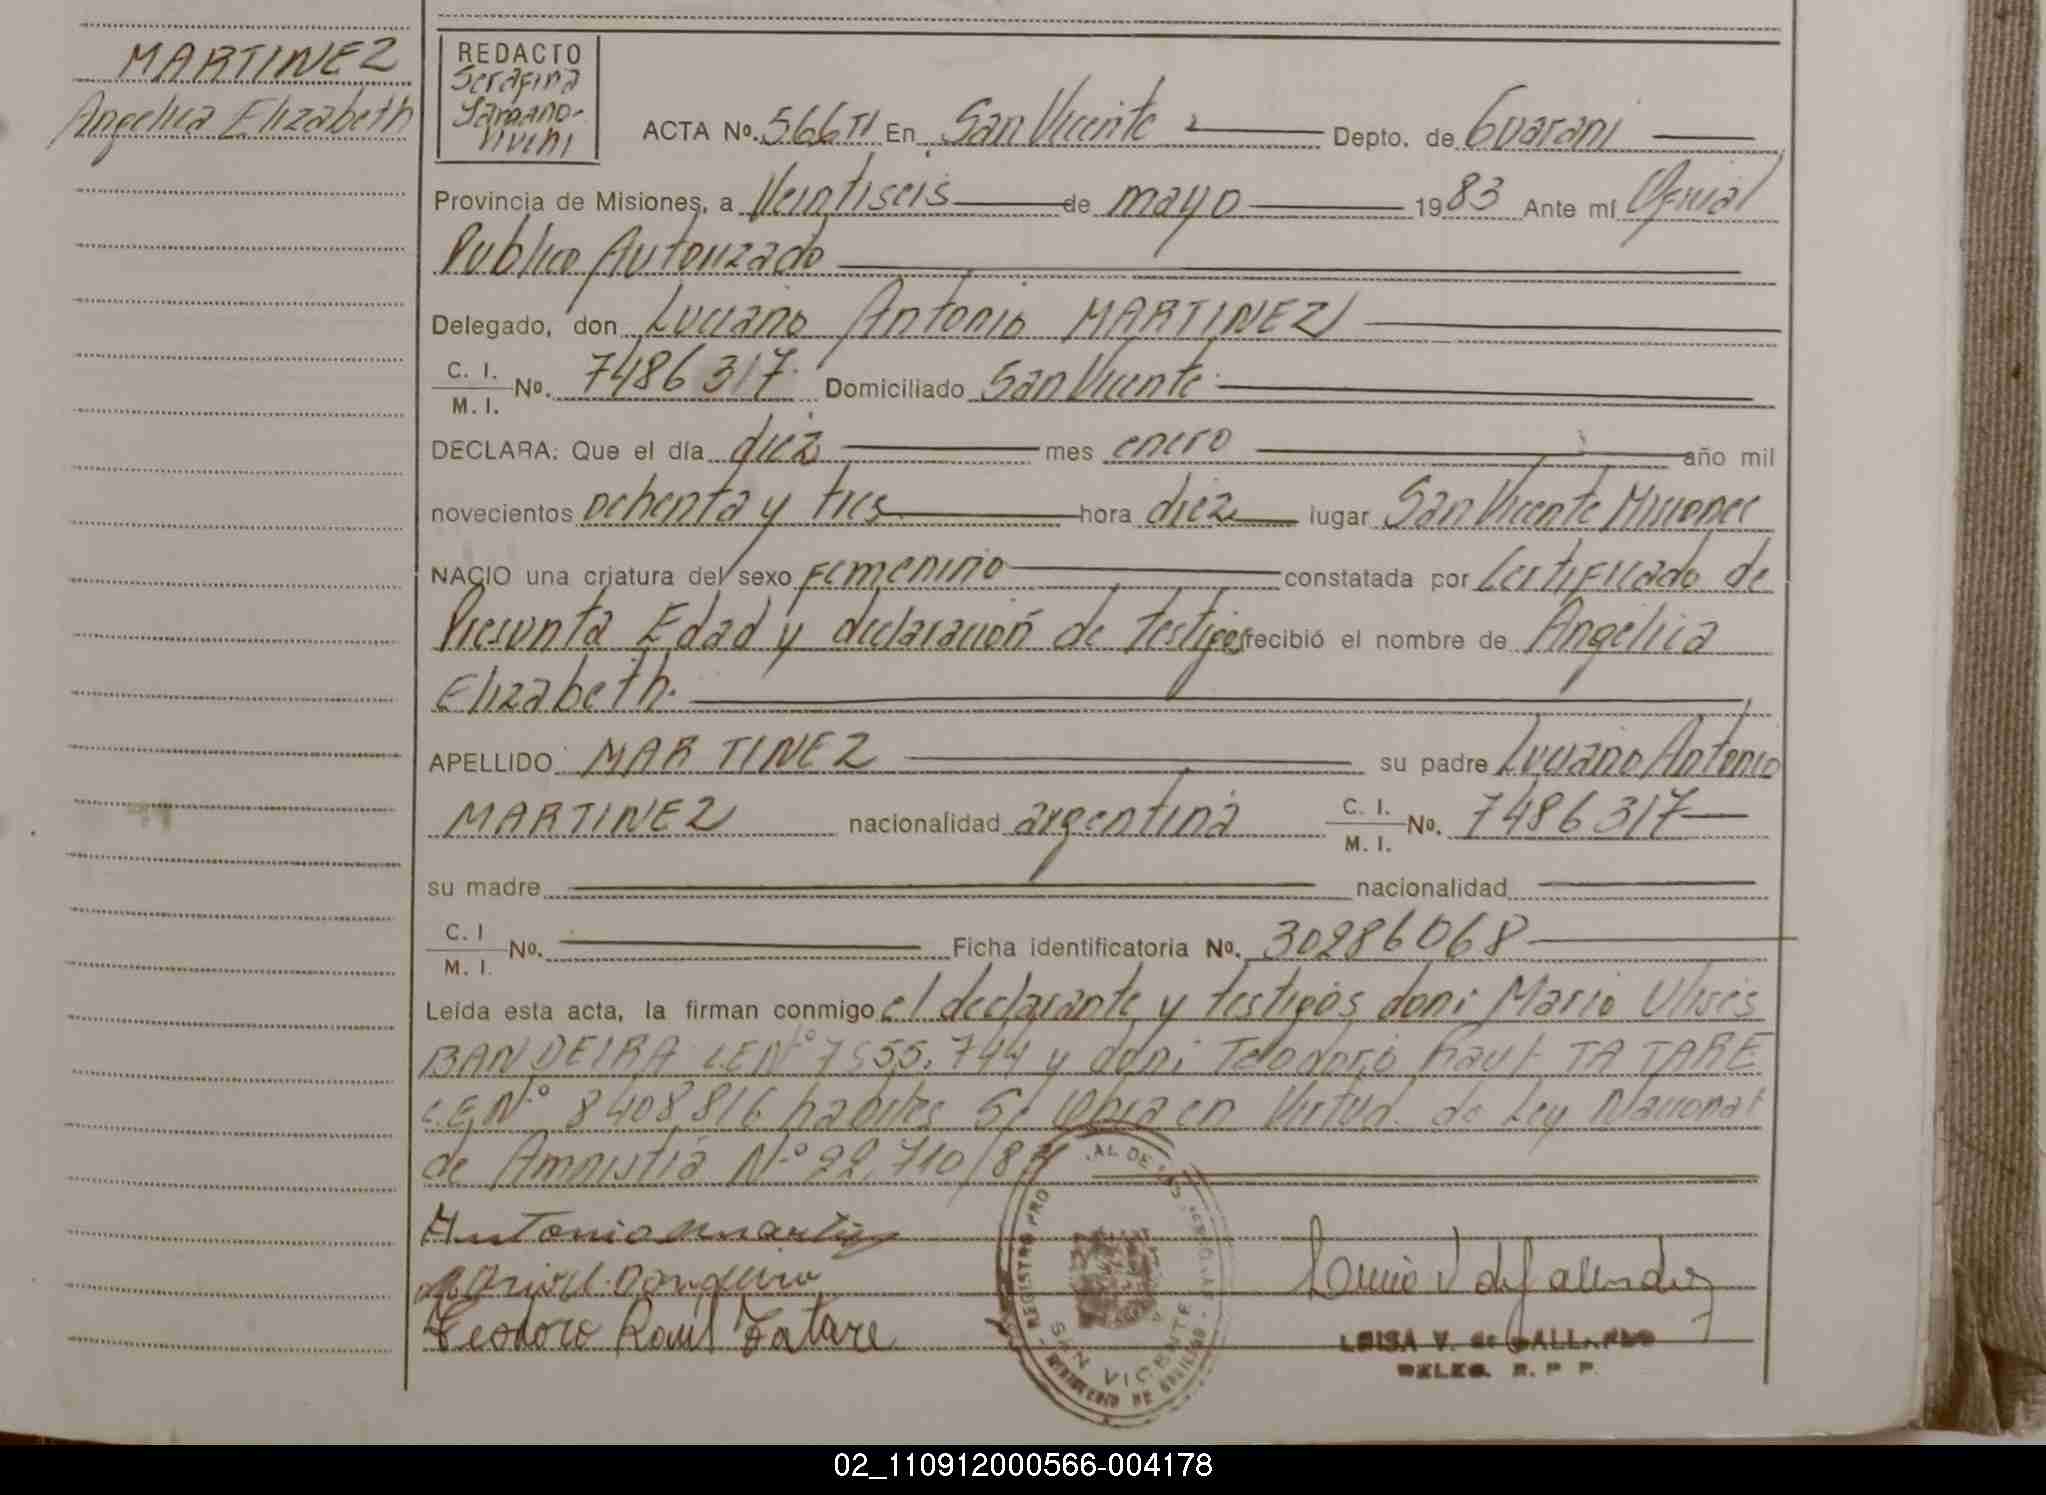 MARTINEZ
Angelica Elizabeth
REDACTO
Serafina
ACTA Nº. 566 TI En San Vicente Depto. de Guarani
Provincia de Misiones, a Veintiseis de mayo 1983 Ante mí Oficial
Publico Autorizado
Delegado, don Luciano Antonio MARTINEZ
C. I.
M. I. Nº. 7486317 Domiciliado San Vicente
DECLARA: Que el día diez mes enero año mil
novecientos ochenta y tres hora diez lugar San Vicente Misiones
NACIO una criatura del sexo Femenino constatada por Certificado de
Presunta Edad y declaración de testigos recibió el nombre de Angelica
Elizabeth.
APELLIDO MARTINEZ su padre Luciano Antonio
MARTINEZ nacionalidad argentina C. I.
M. I. Nº. 7486317
su madre nacionalidad
C. I
M. I. Nº. Ficha identificatoria Nº. 30286068
Leída esta acta, la firman conmigo el declarante y testigos don: Mario Ulises
BANDEIRA L.E.Nº 7555.744 y don: Teodoro Raul TATARE
L.E.Nº 8408816 habiles Se labra en Virtud de Ley Nacional
de Amnistia Nº 22.710/83
Antonio Martinez
Teodoro Raul Tatare
REGISTRO PRO AL DE LAS PERSONAS
SAN VICENTE
LUISA V. de GALLARDO
DELEG. R. P. P.
02_110912000566-004178